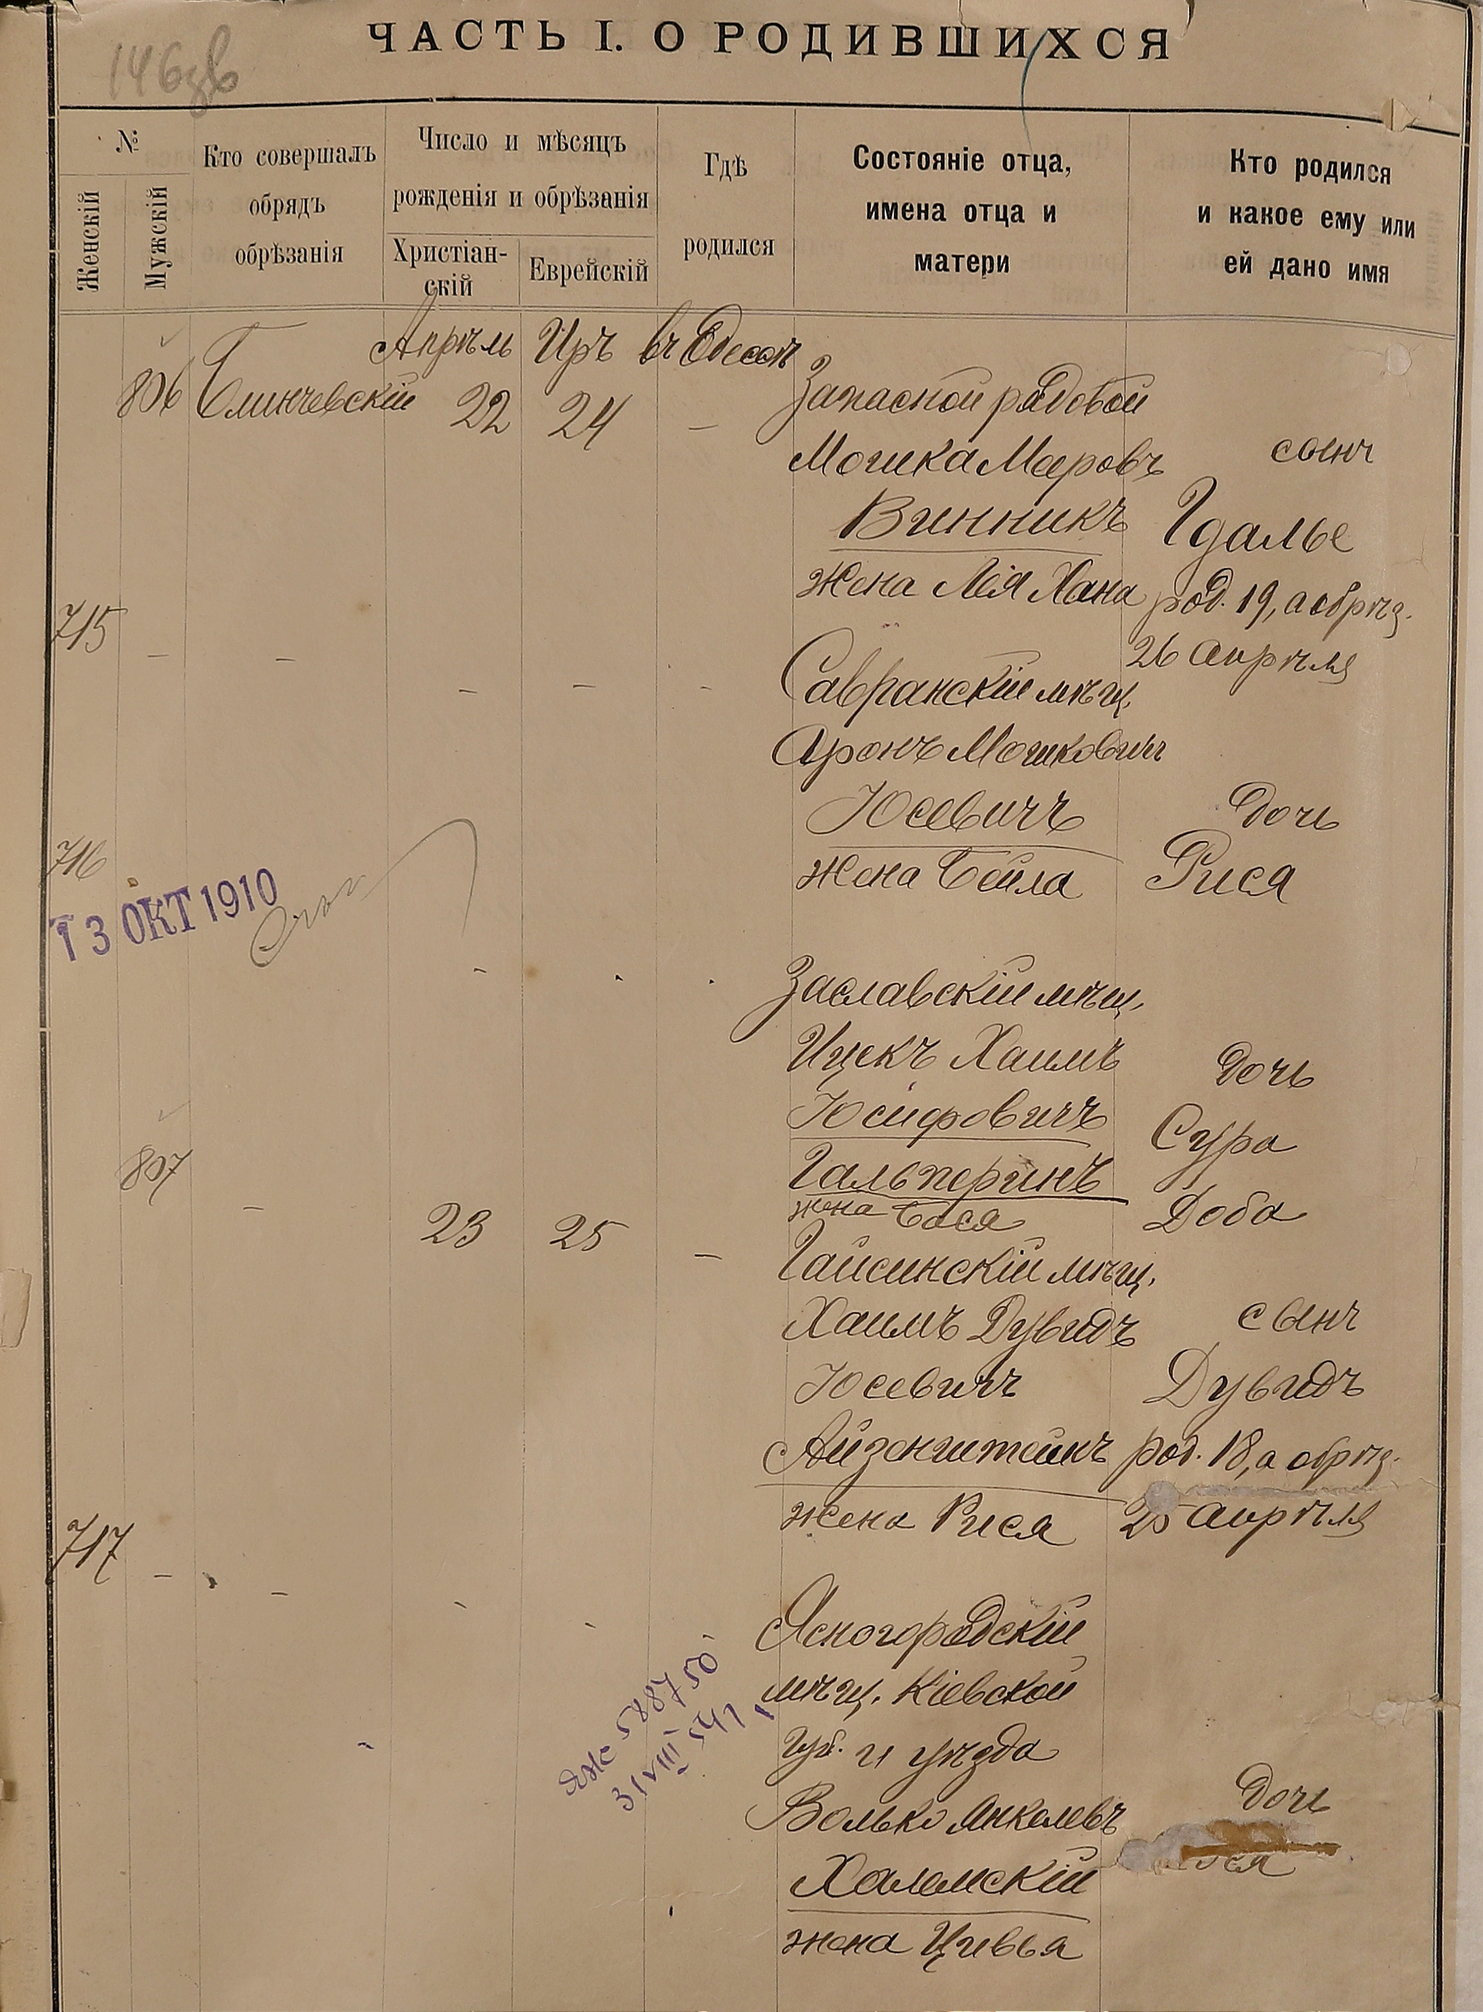 146
ЧАСТЬ I. О РОДИВШИХСЯ
№
Женскій
Мужскій
Кто совершалъ
обрядъ
обрѣзанія
Число и мѣсяцъ
рожденія и обрѣзанія
Христіан-
скій
Еврейскій
Гдѣ
родился
Состояніе отца,
имена отца и
матери
Кто родился
и какое ему или
ей дано имя
Апрѣль Иръ въ Одессѣ
806 Блинчевскій 22 24 —
Запасной рядовой
Мошка Мееровъ
Винникъ
жена Лея Хана
сынъ
Гдалье
род. 19, а обрѣз.
26 апрѣля
715 — — — — -
Савранскій мѣщ.
Аронъ Мошковичъ
Юсевичъ
жена Бейла
дочь
Рися
716
13 ОКТ 1910
Заславскій мѣщ.
Ицекъ Хаимъ
Юсифовичъ
Гальперинъ
жена Бася
дочь
Сура
Доба
807 — 23 25 —
Гайсинскій мѣщ.
Хаимъ Дувидъ
Юсевичъ
Айзенштейнъ
жена Рися
сынъ
Дувидъ
род. 18, а обрѣз.
25 апрѣля
717 — — - -
Ясногородскій
мѣщ. Кіевской
губ. и уѣзда
Волько Янкелевъ
Халемскій
жена Цивья
дочь
яже 588750
31 VIII 541